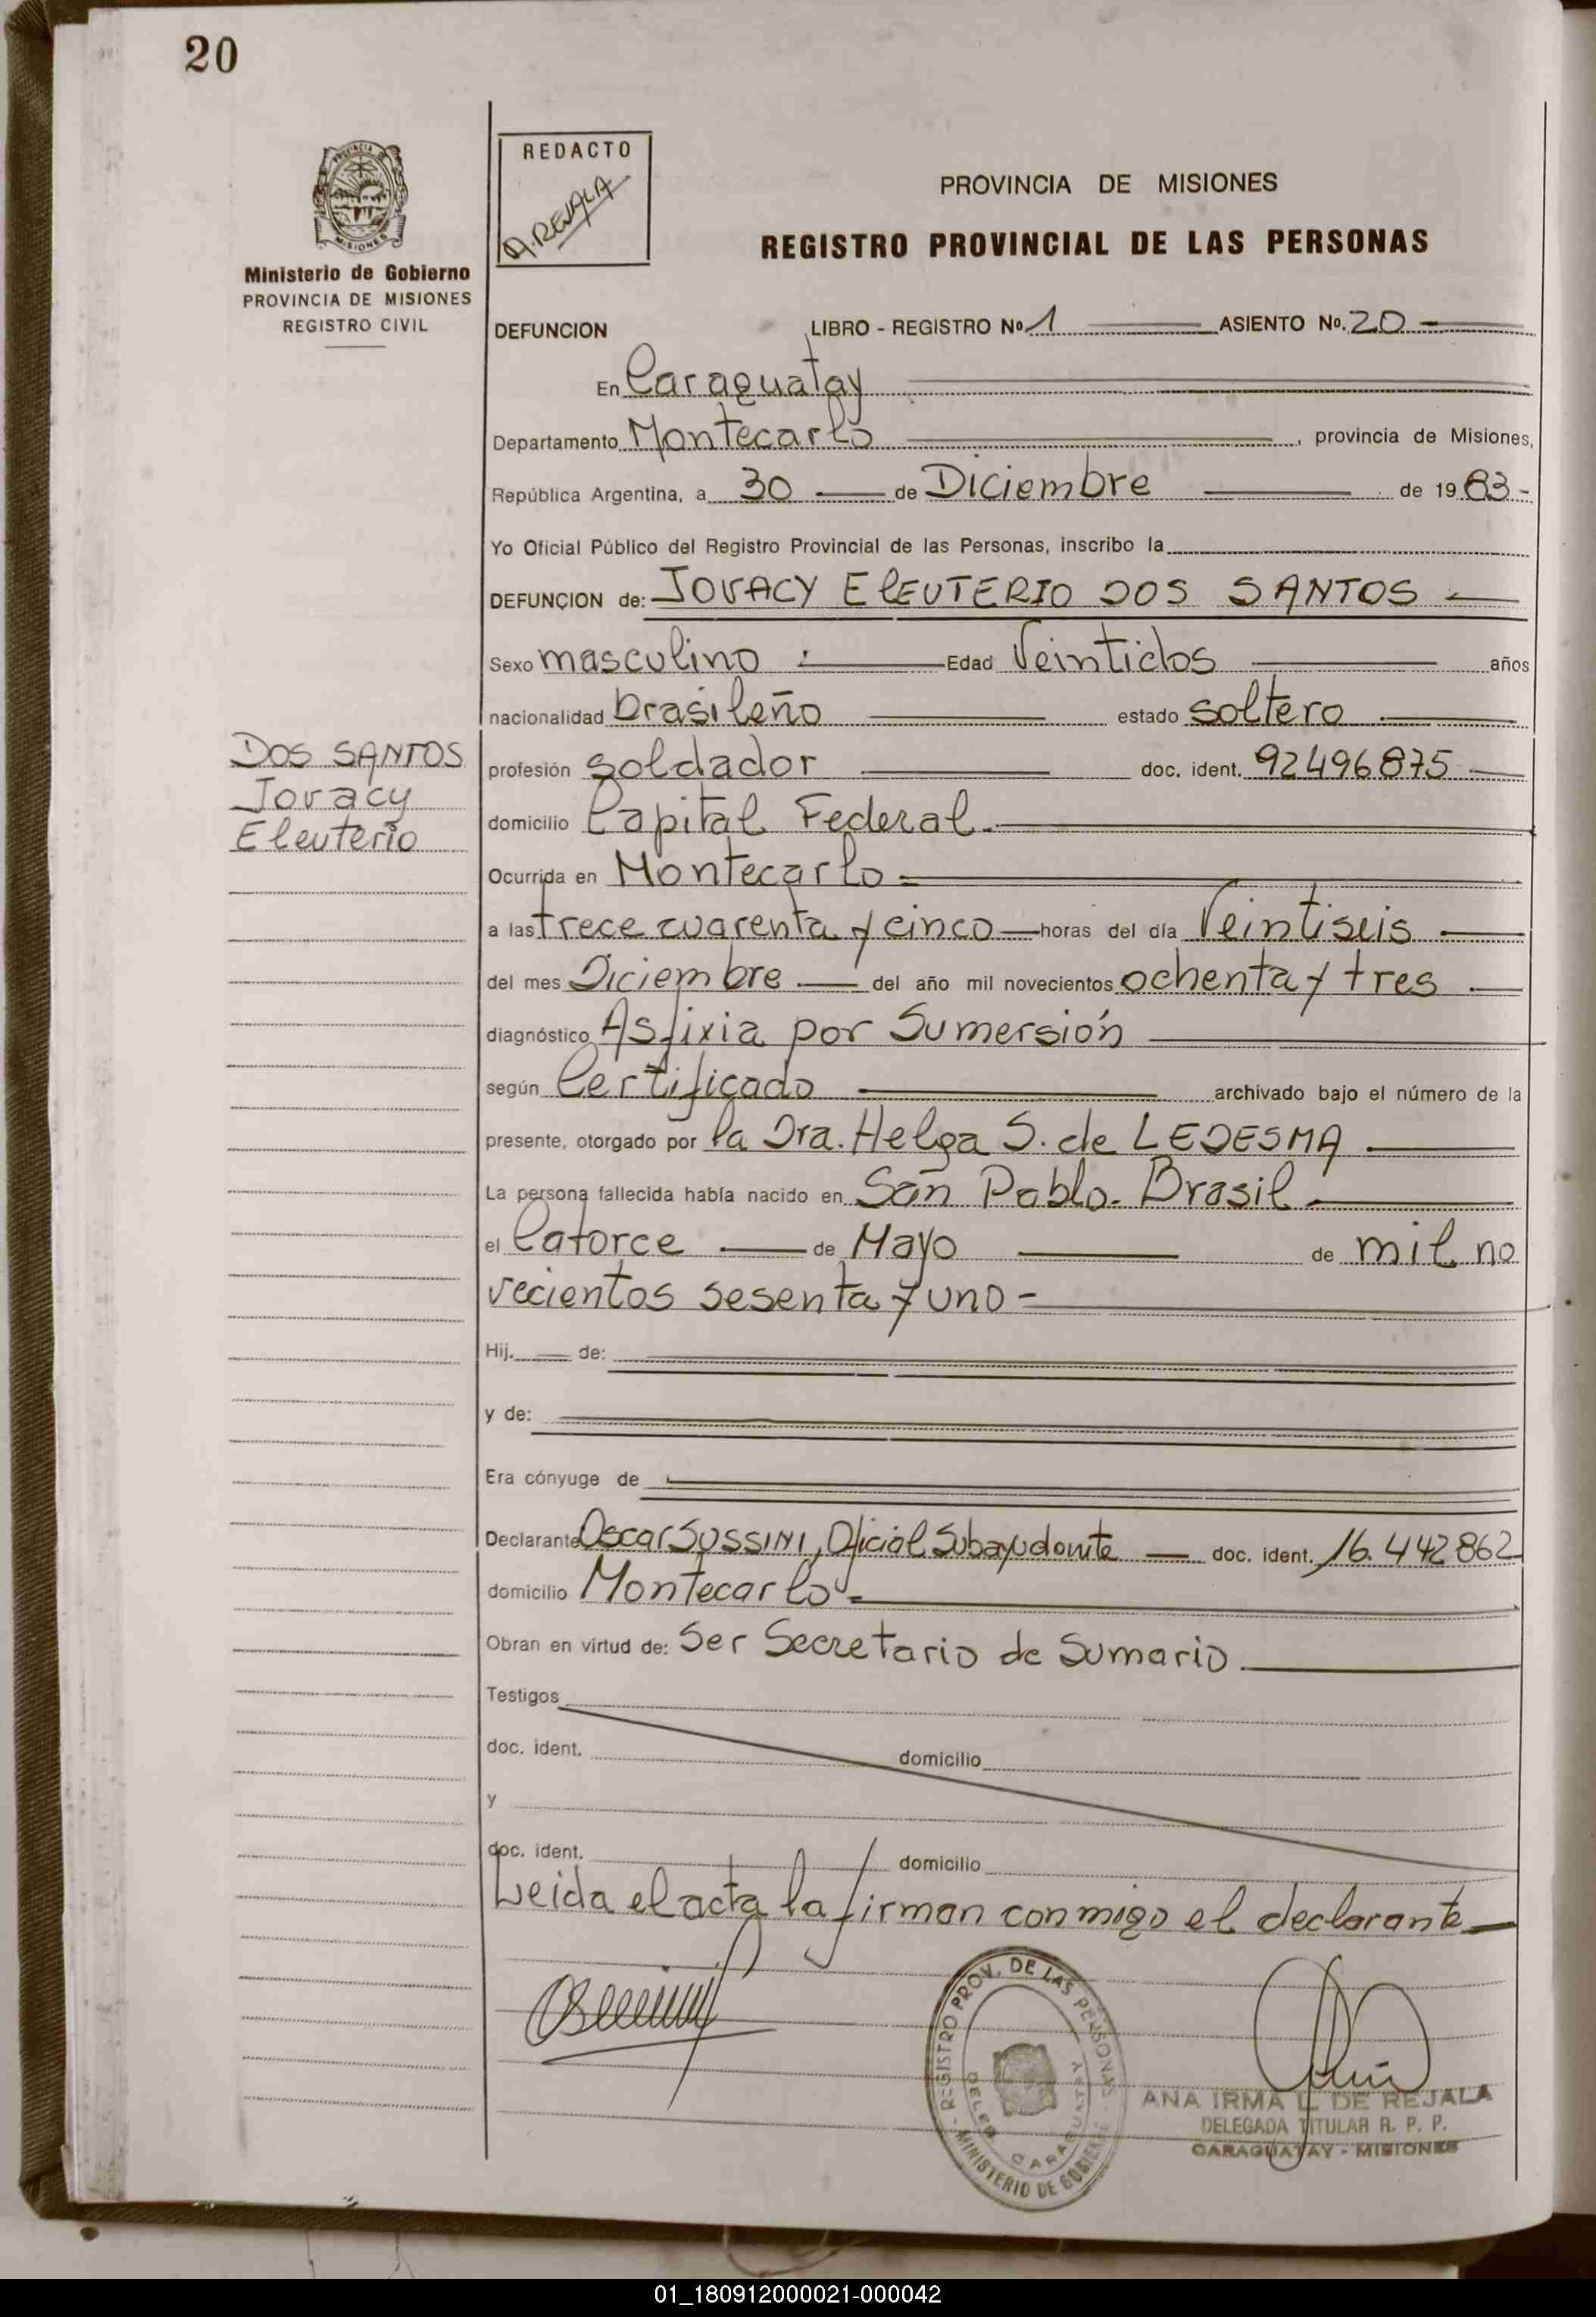 20
PROVINCIA DE MISIONES
Ministerio de Gobierno
PROVINCIA DE MISIONES
REGISTRO CIVIL
REDACTO
A. REJALA
PROVINCIA DE MISIONES
REGISTRO PROVINCIAL DE LAS PERSONAS
DEFUNCION LIBRO - REGISTRO Nº 1 ASIENTO Nº. 20
En Caraguatay
Departamento Montecarlo, provincia de Misiones,
República Argentina, a 30 de Diciembre de 1983-
Yo Oficial Público del Registro Provincial de las Personas, inscribo la
DEFUNCION de: JOVACY ELEUTERIO DOS SANTOS
Sexo masculino Edad Veintidos años
nacionalidad brasileño estado soltero
DOS SANTOS
Jovacy
Eleuterio
profesión soldador doc. ident. 92496875
domicilio Capital Federal.
Ocurrida en Montecarlo
a las trece cuarenta y cinco horas del día Veintiseis
del mes Diciembre del año mil novecientos ochenta y tres
diagnóstico Asfixia por Sumersión
según Certificado archivado bajo el número de la
presente, otorgado por la Dra. Helga S. de LEDESMA
La persona fallecida había nacido en San Pablo. Brasil
el Catorce de Mayo de mil no
vecientos sesenta y uno -
Hij. de:
y de:
Era cónyuge de
Declarante Oscar SUSSINI, Oficial Subayudante doc. ident. 16.442862
domicilio Montecarlo
Obran en virtud de: Ser Secretario de Sumario
Testigos
doc. ident. domicilio
y
doc. ident. domicilio
Leida el acta la firman conmigo el declarante
REGISTRO PROV. DE LAS PERSONAS
MINISTERIO DE GOBIERNO
DELEG. CARAGUATAY
ANA IRMA L. DE REJALA
DELEGADA TITULAR R. P. P.
CARAGUATAY - MISIONES
01_180912000021-000042